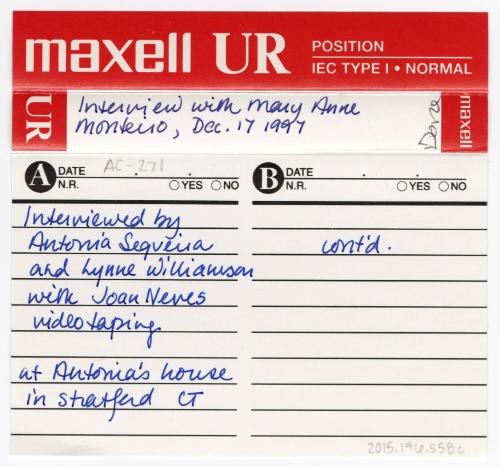 maxell UR POSITION
IEC TYPE I • NORMAL
UR Interview with Mary Anne
Monteiro, Dec. 17 1997
Done
maxell
A DATE AC-271 . .
N.R. ○YES ○NO
Interviewed by
Antonia Sequeira
and Lynne Williamson
with Joan Neves
videotaping
at Antonia's house
in Stratford CT
B DATE . .
N.R. ○YES ○NO
cont'd.
2015.196.558c